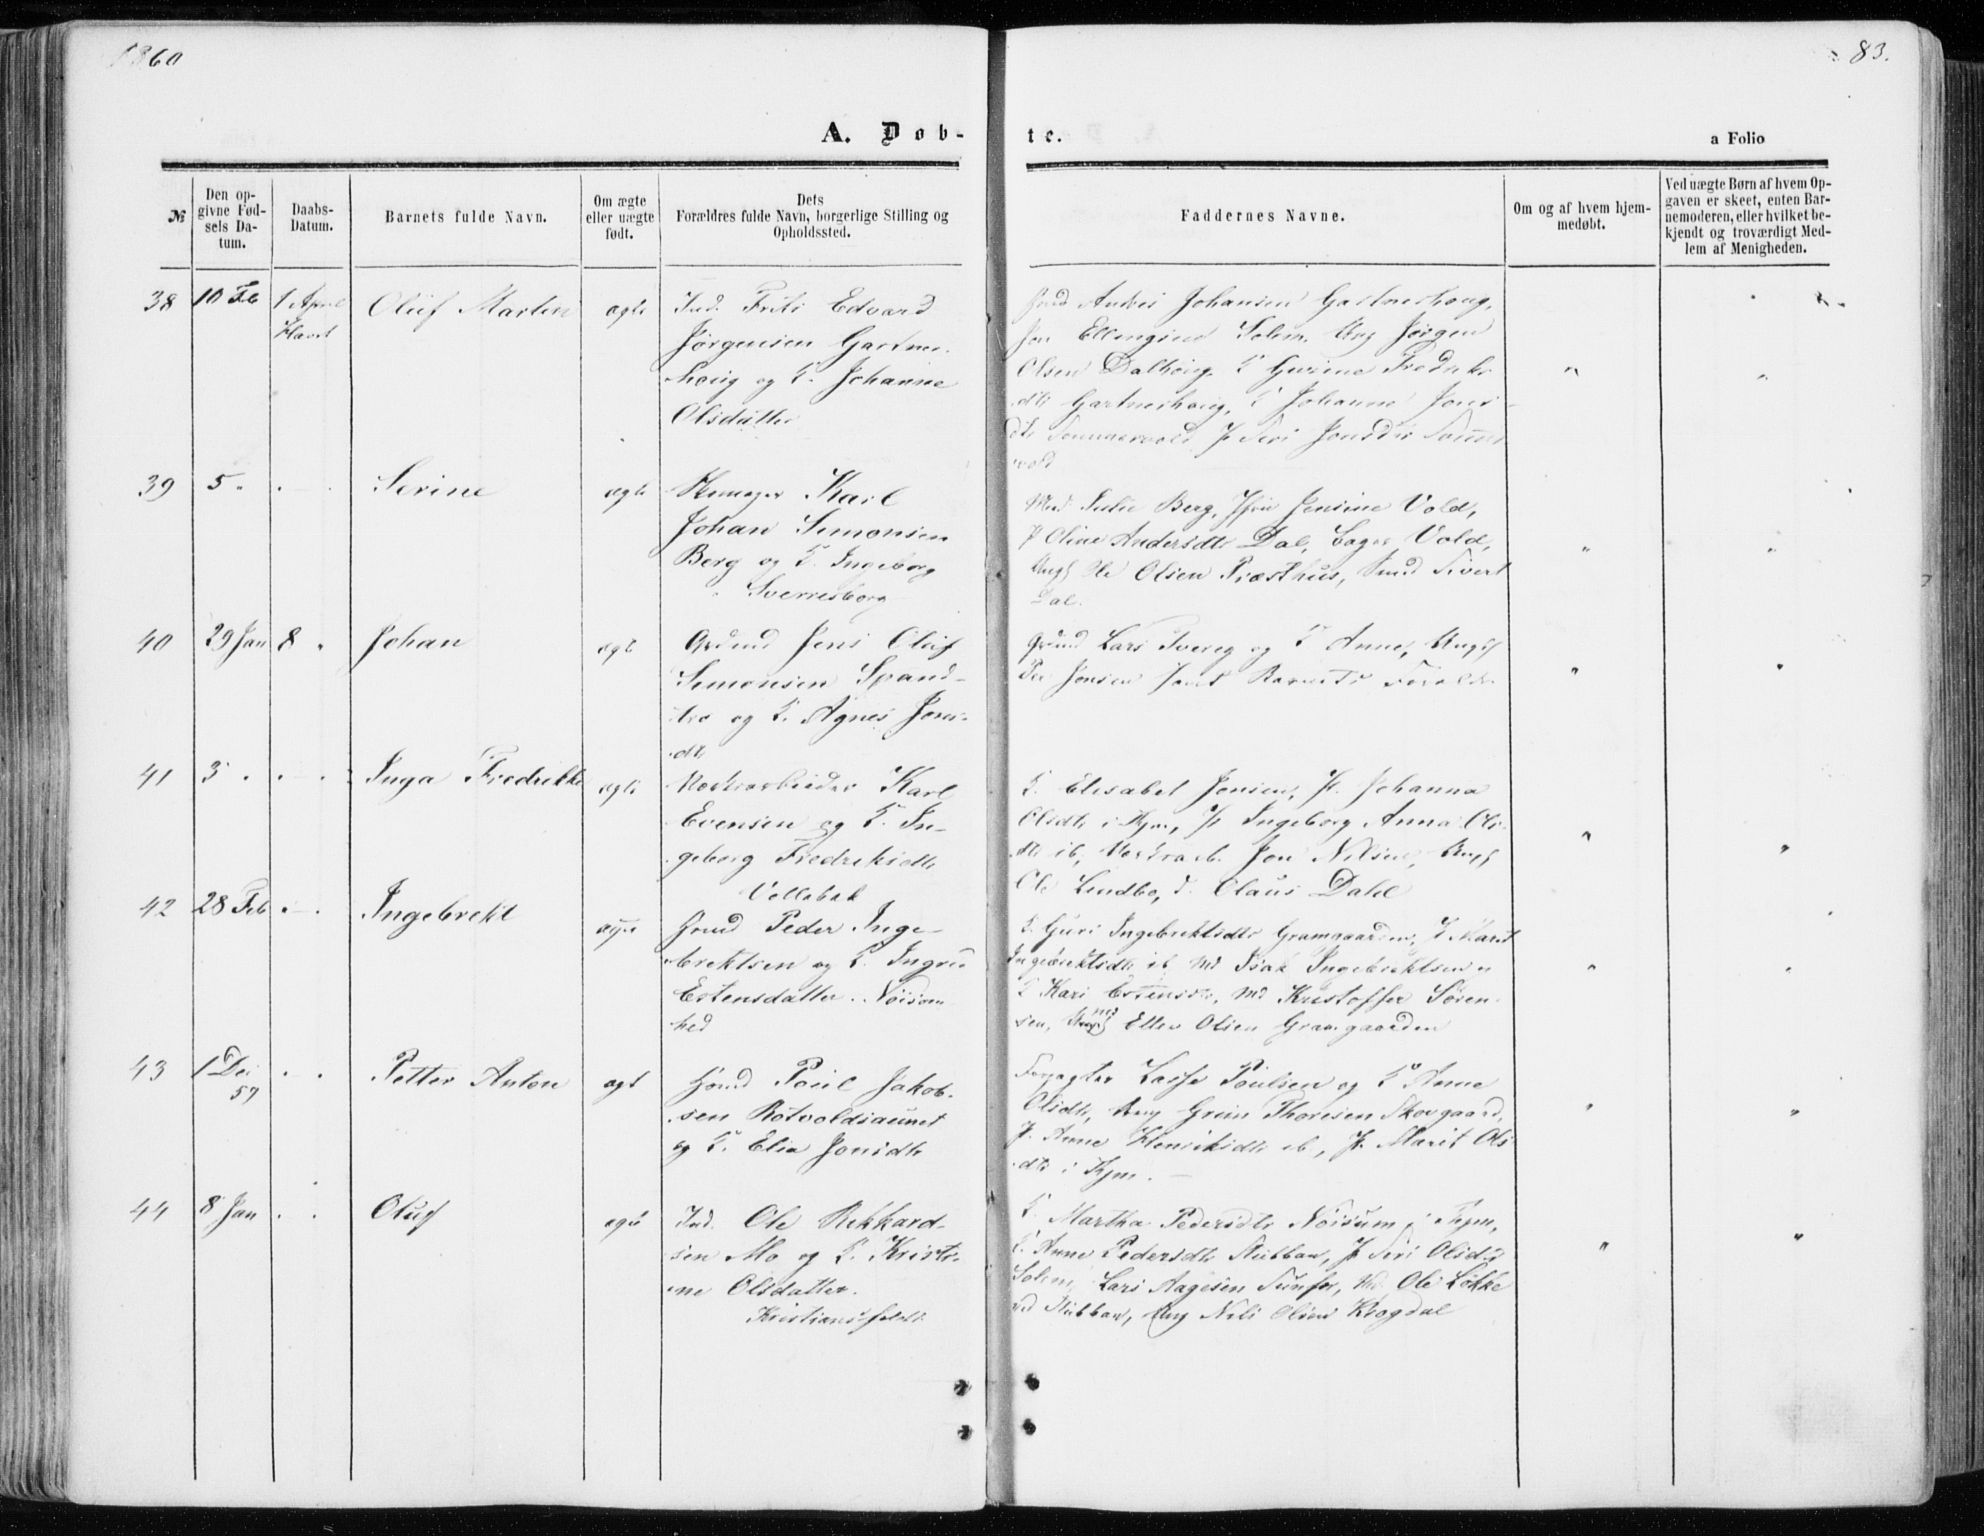 1860
83.
A. Døb-
te.
a Folio
№
Den op-
givne Fød-
sels Da-
tum.
Daabs-
Datum.
Barnets fulde Navn.
Om ægte
eller uægte
født.
Dets
Forældres fulde Navn, borgerlige Stilling og
Opholdssted.
Faddernes Navne.
Om og af hvem hjem-
medøbt.
Ved uægte Børn af hvem Op-
gaven er skeet, enten Bar-
nemoderen, eller hvilket be-
kjendt og troværdigt Med-
lem af Menigheden.
38
10 Feb
1 April
Havst
Oluf Martin
ægte
Ind. Frits Edvard
Jörgensen Gartner-
houg og K. Johanne
Olsdatter
Johansen Gartnerhoug,
Jon Ellingsen Solem, Ung Jörgen
Olsen Dalhoug, K Gurine Fredriks
dtr Gartnerhoug, K Johanne Jons
dtr P Siri Jonsdtr
vold
39
5 "
Serine
ægte
Karl
Johan Simonsen
Berg og K. Ingeborg
Sverresborg
Md Julie Berg, Jfru Jensine Vold,
P Oline Andersdtr Dal, Vold,
Ung Ole Olsen Præsthus, Sivert
Dal.
40
29 Jan
8 "
Johan
ægte
Jens Oluf
Simonsen Spand-
bro og K. Agnes Jons-
dtr
Grmd Lars Tvereg og K Anne, Ungk
Per Jonsen samt Barnets Foreldr
41
3 "
Inga Fredrikke
ægte
Værksarbeider Karl
Evensen og K. In-
geborg Fredriksdtr
Vollabak
K. Elisabet Jensen, P. Johanna
Olsdtr i Hjm, P Ingeborg Anna Ols-
dtr ib, Værksarb. Jon Nilsen, Ungk
Ole Lindbo, d. Claus Dahl
42
28 Feb
Ingebrekt
ægte
Hmd Peder Inge-
brektsen og K. Ingri
Estensdatter. Nöisom-
hed
K. Guri Ingebrektsdtr Gramgaarden, P Marit
Ingebrektsdtr ib, Md Isak Ingebrektsen "
K Kari Estensdtr, Md Kristoffer Sören-
sen, Ellev Olsen Gramgaarden
43
1 Dec
59
Petter Anton
ægt
Hmd Poul Jakob-
sen Rotvoldsaunet
og K. Elia Jonsdtr
Forpagter Lasse Poulsen og K Anne
Olsdtr, Ung Thoresen Skovgaard,
P. Anne Henriksdtr ib, P. Marit Ols
dtr i Hjm.
44
8 Jan
Oluf
ægte
Ind. Ole Rikkard-
sen Mo og K. Kristi-
ne Olsdatter.
Kristiansfeldt
K. Martha Pedersdtr Nöisum i Hjm,
K. Anne Pedersdtr Stubban, P Siri Olsdtr
Solem, Lars Aagesen Ole Lökke
ved Stubban, Ung Nils Olsen Krogdal